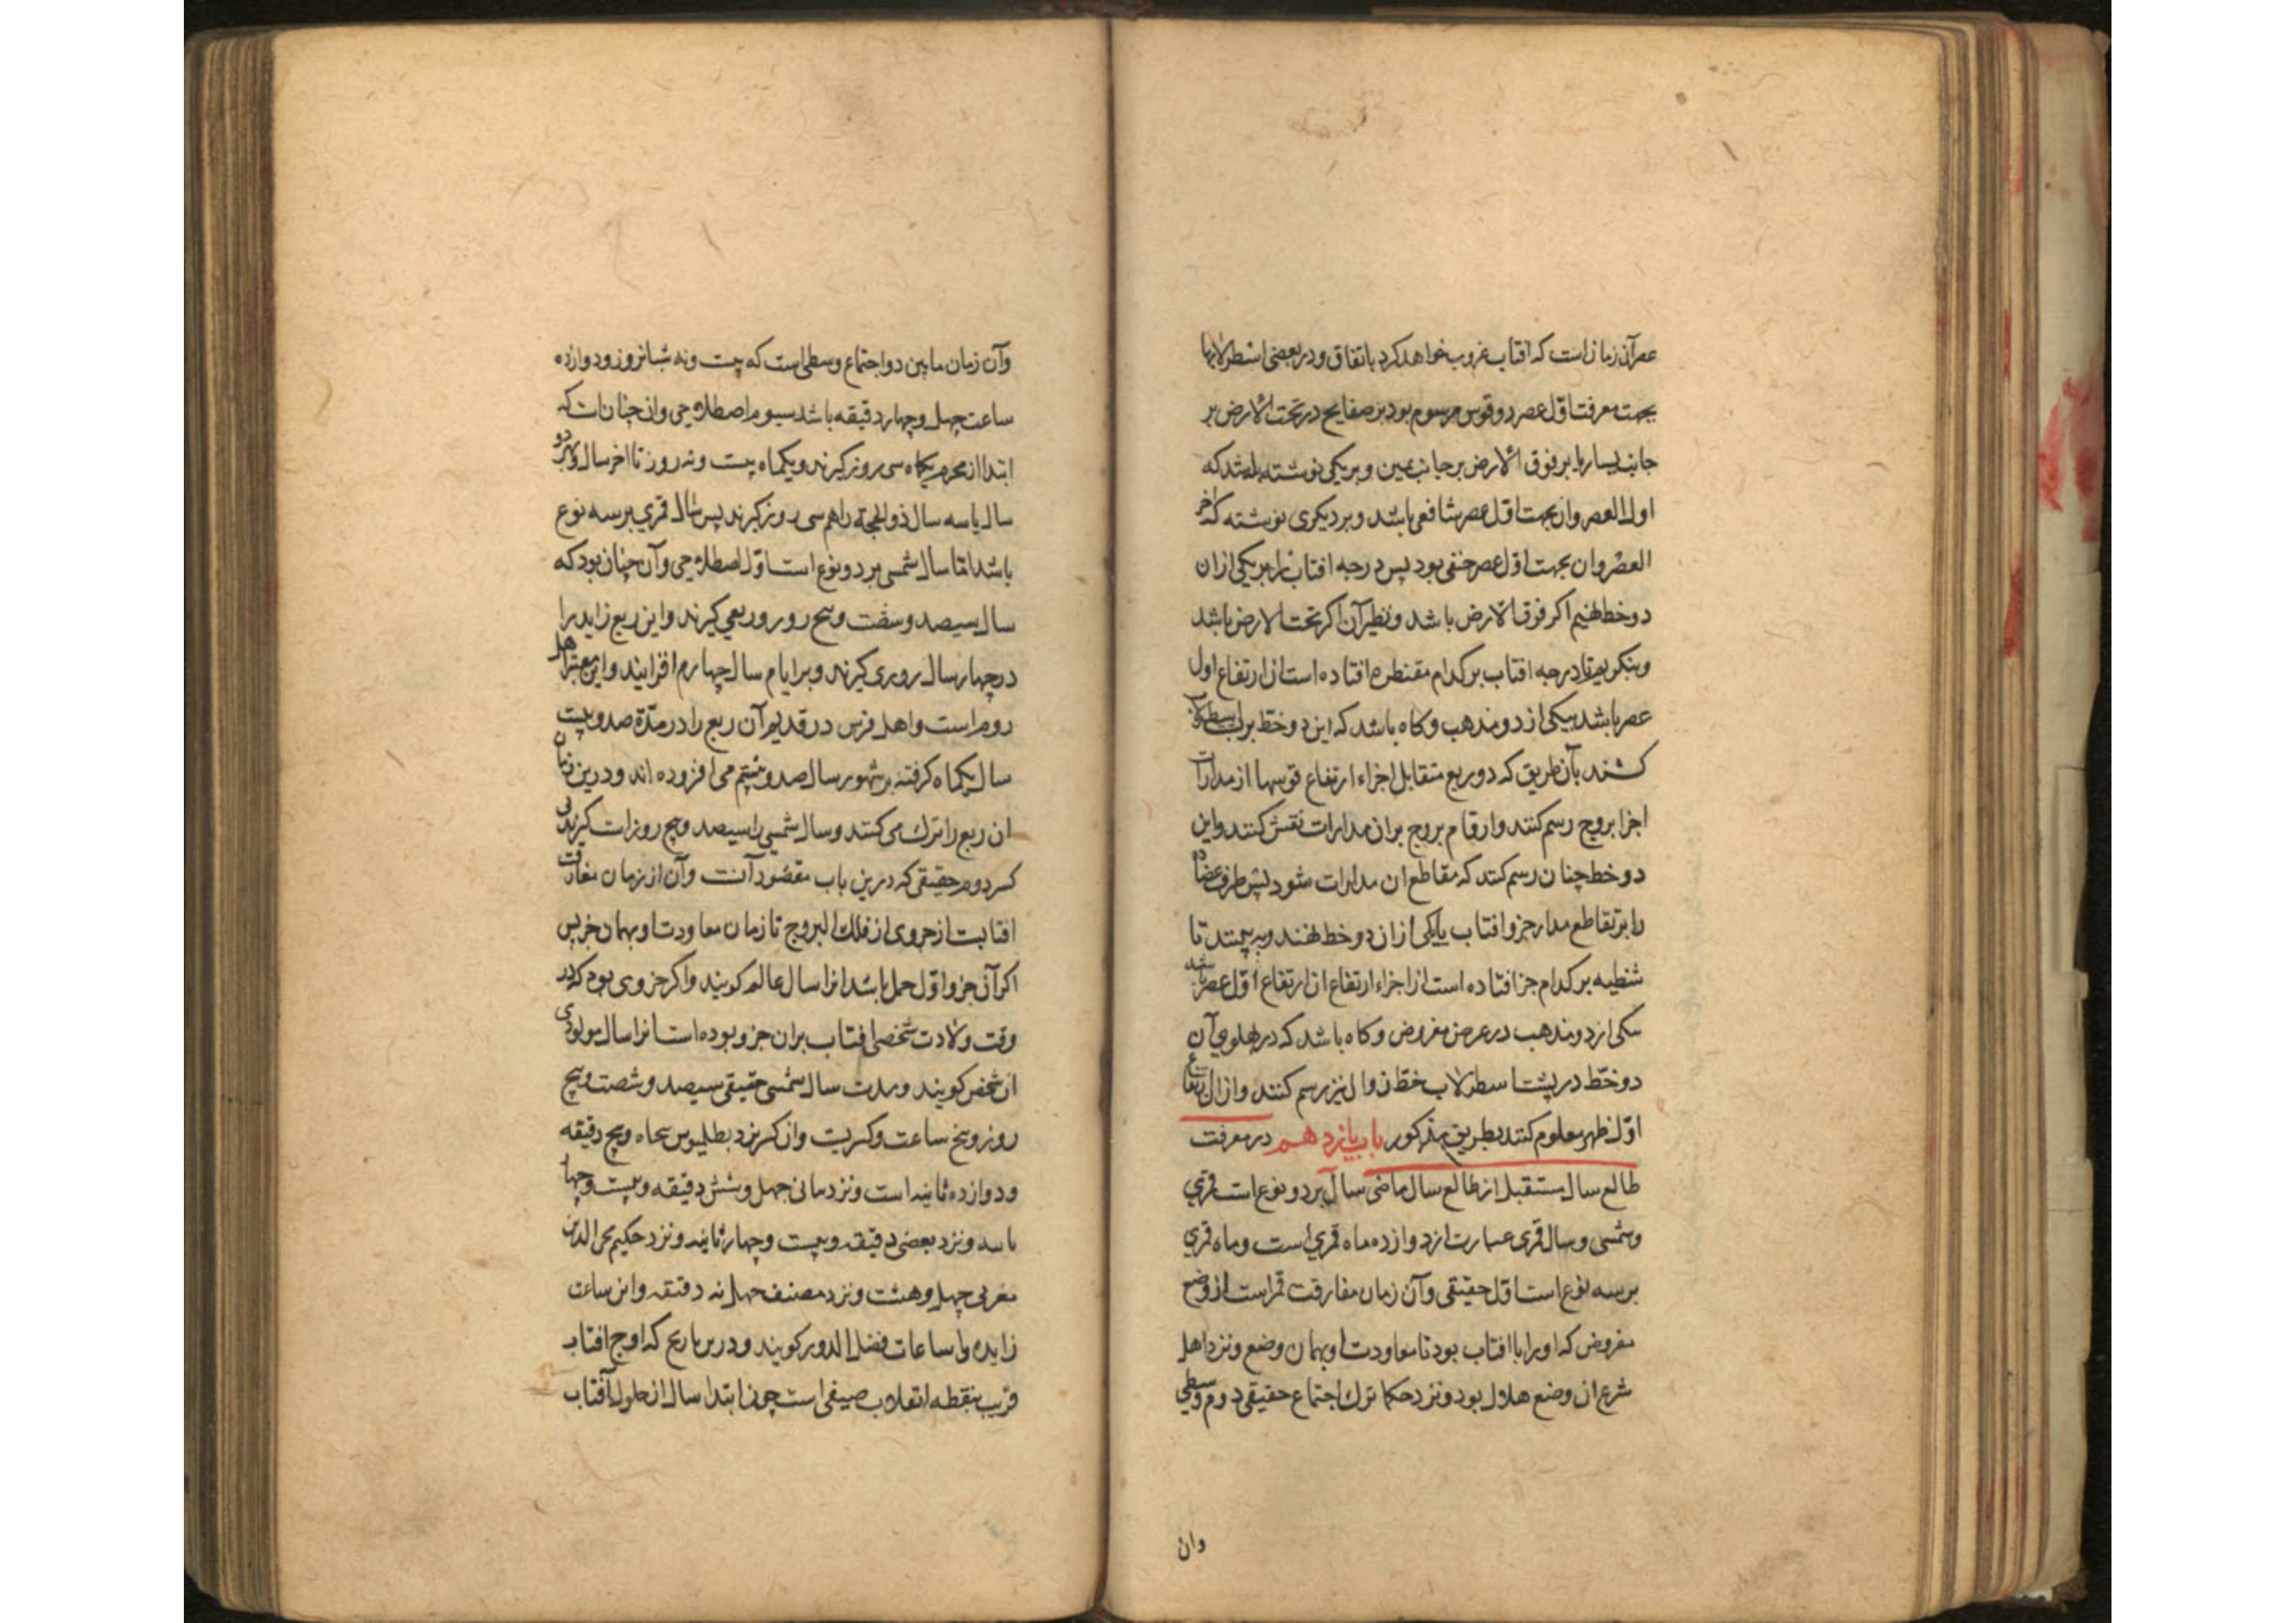 عصر آن زمان است که افتاب غروب خواهد کرد باتفاق و در بعضی اسطرلابها
بجهت معرفت اول عصر دو قوس مرسوم بود بر صفایح در تحت الارض بر
جانب یسار یا بر فوق الارض بر جانب یمین و بر یکی نوشته باشد که
اول العصر وان بجهت اول عصر شافعی باشد و بر دیگری نوشته که اخر
العصر وان بجهت اول عصر حنفی بود پس درجه افتاب را بر یکی از ان
دو خط نهیم اکر فوق الارض باشد و نظیر آن اکر تحت الارض باشد
و بنکریم تا درجه افتاب بر کدام مقنطره افتاده است ان ارتفاع اول
عصر باشد بیکی از دو مذهب و کاه باشد که این دو خط بر پشت اسطرلاب
کشند بآن طریق که در ربع متقابل اجزاء ارتفاع قوسها از مدارات
اجزا بروج رسم کنند و ارقام بروج بران مدارات نقش کنند و این
دو خط چنان رسم کنند که مقاطع ان مدارات شود پس طرف عضاده
را بر تقاطع مدار جزو افتاب بایکی از ان دو خط نهند و به بینند تا
شظیه بر کدام جز افتاده است از اجزاء ارتفاع ان ارتفاع اول عصر باشد
بیکی از دو مذهب در عرض مفروض و کاه باشد که در پهلوی آن
دو خط در پشت اسطرلاب خط زوال نیز رسم کنند و ازان ارتفاع
اول ظهر معلوم کنند بطریق مذکور باب یازدهم در معرفت
طالع سال مستقبل از طالع سال ماضی سال بر دو نوع است قمری
و شمسی و سال قمری عبارت از دوازده ماه قمری است و ماه قمری
بر سه نوع است اول حقیقی و آن زمان مفارقت قمر است از وضع
مفروض که او را با افتاب بود تا معاودت او بهمان وضع و نزد اهل
شرع ان وضع هلال بود و نزد حکما ترک اجتماع حقیقی دوم وسطی
وان
وآن زمان مابین دو اجتماع وسطی است که بیست و نه شبانروز و دوازده
ساعت چهل و چهار دقیقه باشد سیوم اصطلاحی وان چنانست که
ابتدا از محرم یکماه سی روز کیرند و یکماه بیست و نه روز تا اخر سال و در هر دو
سال یا سه سال ذو الحجه را هم سی روز کیرند پس سال قمری بر سه نوع
باشد اما سال شمسی بر دو نوع است اول اصطلاحی و آن چنان بود که
سال سیصد و شصت و پنج روز و ربعی کیرند و این ربع زاید را
در چهار سال روزی کیرند و بر ایام سال چهارم افزایند و این معتبر اهل
روم است و اهل فرس در قدیم آن ربع را در مدة صد و بیست
سال یکماه کرفته بر شهور سال صد و بیستم می افزوده اند و درین زمان
ان ربع را ترک می کنند و سال شمسی را سیصد و پنج روزات کیرند بی
کسر دوم حقیقی که درین باب مقصود آنست وآن از زمان مفارقت
افتابست از جزوی از فلک البروج تا زمان معاودت او بهمان جز پس
اکر آن جزو اول حمل باشد انرا سال عالم کویند و اکر جزوی بود که در
وقت ولادت شخصی افتاب بران جزو بوده است انرا سال مولودی
ان شخص کویند و مدت سال شمسی حقیقی سیصد و شصت و پنج
روز و پنج ساعت و کسریست وان کسر نزد بطلیموس پنجاه و پنج دقیقه
و دوازده ثانیه است و نزد بتانی چهل و شش دقیقه و بیست و چهار
باشد و نزد بعضی دقیقه و بیست و چهار ثانیه و نزد حکیم محی الدین
مغربی چهل و هشت و نزد مصنف چهل نه دقیقه و این ساعت
زایده را ساعات فضل الدور کویند و درین تاریخ که اوج افتاب
قریب بنقطه انقلاب صیفی است چون ابتدا سال از حلول آفتاب